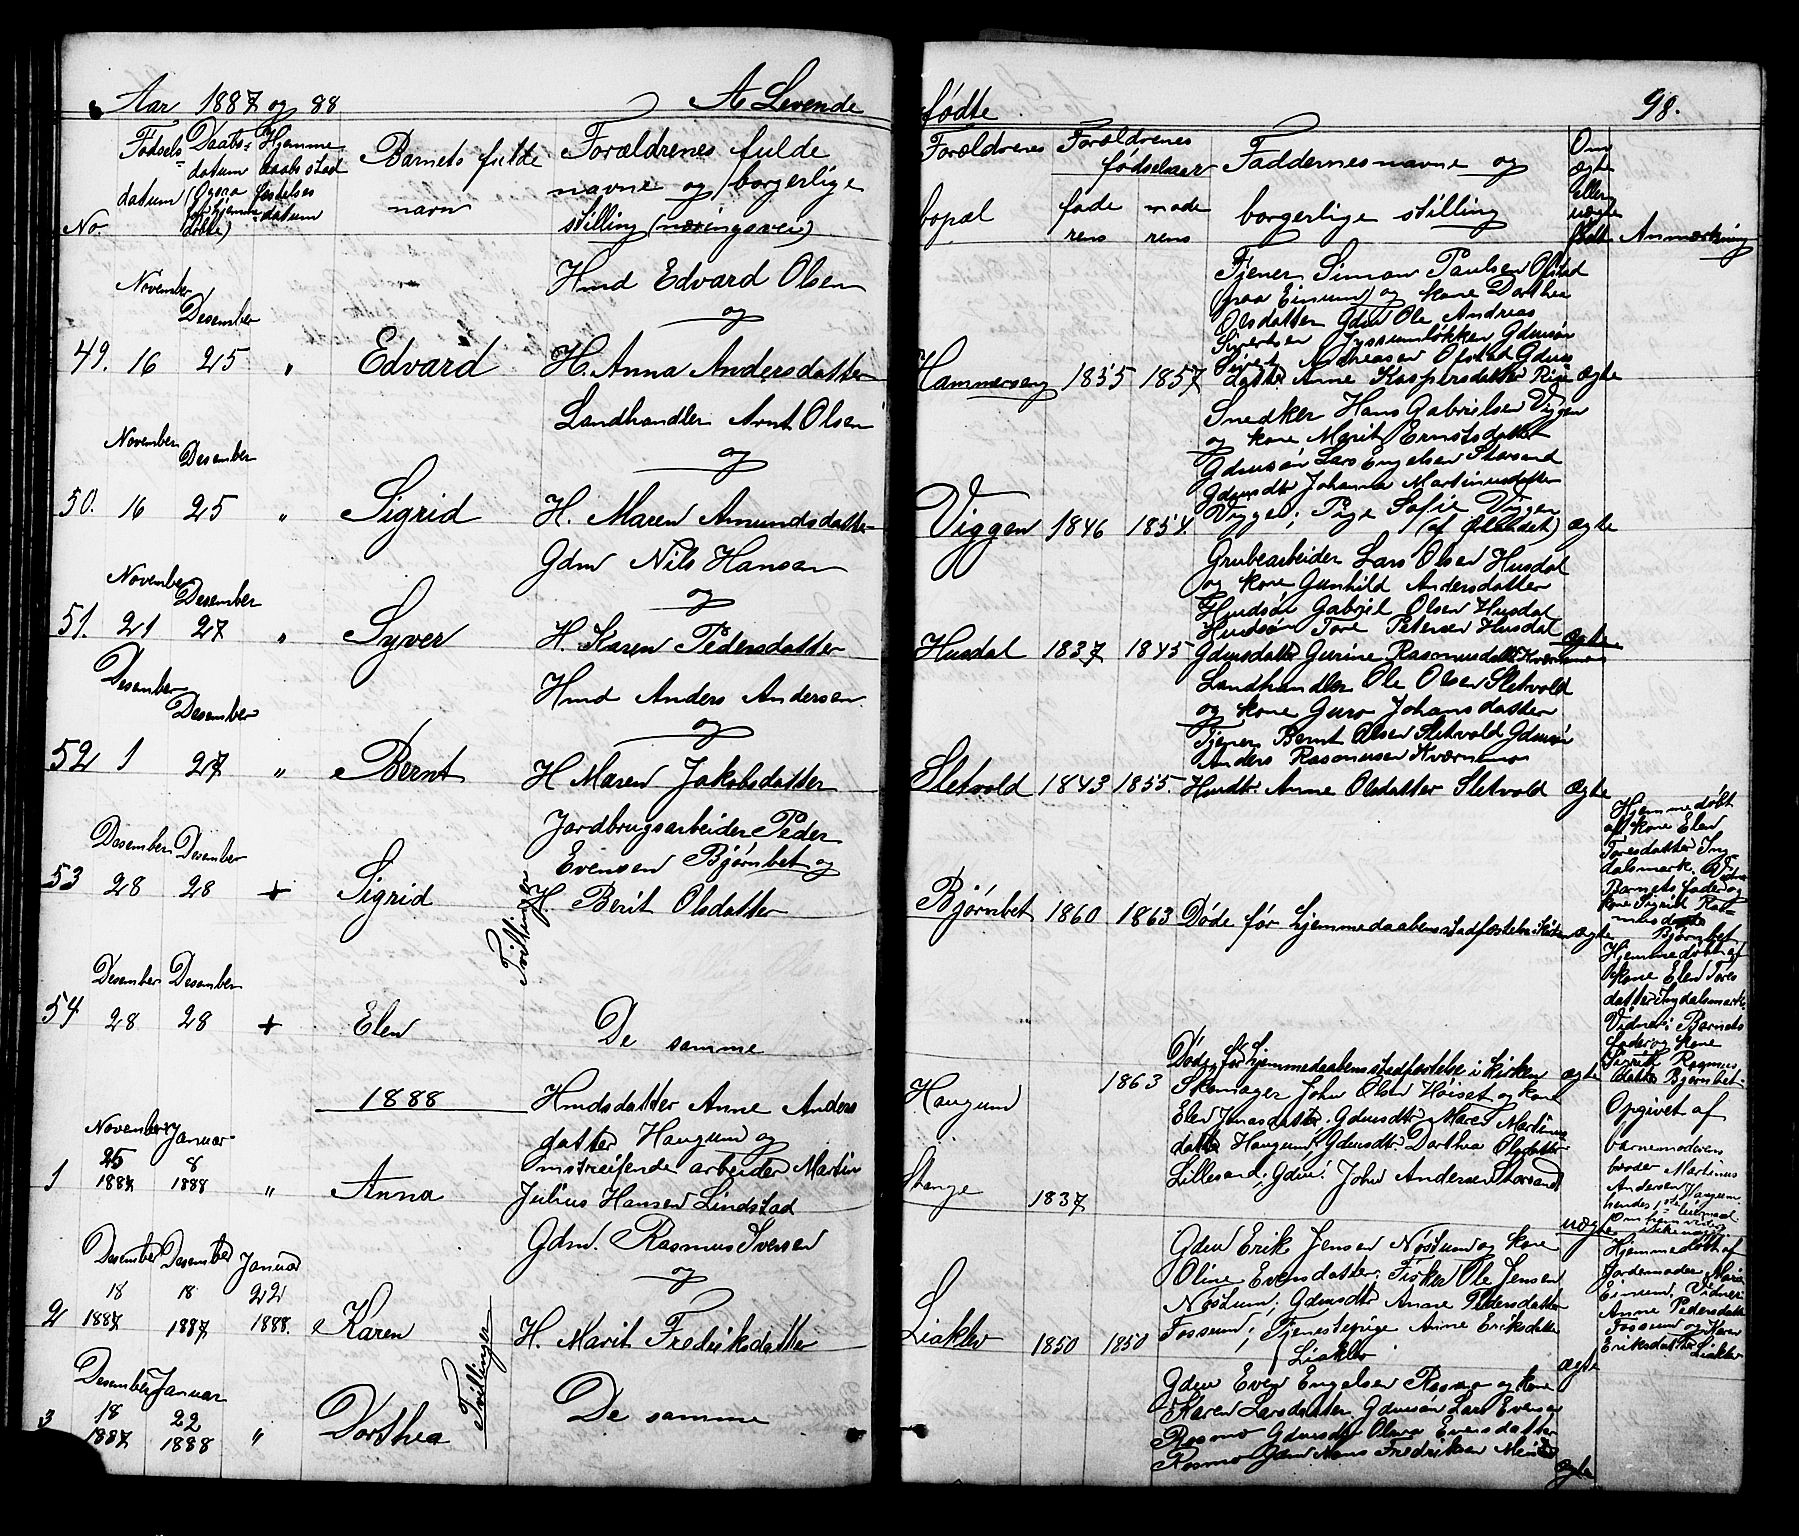 Aar 1887 og 88 A Levende
fødte 98.
No.
Fødsels-
datum
Daabs-
datum
(Ogsaa
for hjemme-
døbte)
Hjemme
daabs stad
festelses
datum
Barnets fulde
navn
Forældrenes fulde
navne og borgerlige
stilling (næringsvei)
Forældrenes
bopæl
Forældrenes
fødselsaar
fade
rens
mode
rens
Faddernes navne og
borgerlige stilling
Om
ægte
eller
uægte
født
Anmærkning
49. November 16 Desember 25 " Edvard
Hmd Edvard Olsen
og
H. Anna Andersdatter
Hammerseng 1855 1857
Tjener Simon Paulsen Ofstad
(paa Einum) og kone Dorthea
Olsdatter Gdm Ole Andreas
Sivertsen Jyssumløkken Gdmsøn
Sivert Andreasen Ofstad Gdms
datter Anne Kaspersdatter Rise ægte
50. November 16 Desember 25 " Sigrid
Landhandler Arnt Olsen
og
H. Maren Amundsdatter
Viggen 1846 1854
Snedker Hans Gabrielsen Viggen
og kone Marit Ernstsdatter
Gdmsøn Lars Engelsen Storsand
Gdmsdtr Johanna Martinusdatter
Viggen; Pige Sofie Viggen
ægte
51. November 21 Desember 27 " Syver
Gdm Nils Hansen
og
H. Karen Pedersdatter
Husdal 1837 1845
Grubearbeider Lars Olsen Husdal
og kone Gunhild Andersdatter
Hmdsøn Gabriel Olsen Husdal
Hmdsøn Tore Petersen Husdal
Gdmsdatter Gurine Rasmusdatter Kværnmo ægte
52 Desember 1 Desember 27 " Bernt
Hmd Anders Andersen
og
H Maren Jakobsdatter
Sletvold 1843 1855.
Landhandler Ole Olsen Sletvold
og kone Guro Johansdatter
Tjener Bernt Olsen Sletvold Gdmsøn
Anders Rasmussen Kværnmo
Hmdtr Anne Olsdatter Sletvold ægte
53 Desember 28 Desember 28 + Sigrid
Tvillinger
Jordbrugsarbeider Peder
Evensen Bjørnbet og
H. Berit Olsdatter
Bjørnbet 1860 1863 Døde før hjemmedaabens stadfæstelse i kirken ægte
Hjemmedøbt
af kone Elen
Toresdatter Ing
dalsmark. Vidner
Barnets fader og
kone Sigrid Ras-
musdatter
Bjørnbet
54 Desember 28 Desember 28 + Elen
De samme
Døde før hjemmedaabens stadfæstelse i kirken ægte
Hjemmedøbt af
kone Elen Tores
datter Ingdalsmark
Vidner: Barnets
fader og kone
Sigrid Rasmus
datter Bjørnbet.
1888
1 November 25 1887 Januar 8 1888 " Anna
Hmdsdatter Anne Anders
datter Haugum og
omstreifende arbeider Martin
Julius Hansen Lindstad
Haugum 1863
Stange 1837
Skomager John Olsen Høiset og kone
Elen Jonasdatter. Gdmsdtr Maren Martinus
datter Haugum; Gdmsdtr Dorthea Olsdatter
Lillesand; Gdm. John Andersen Storsand
uægte
Opgivet af
barnemoderens
broder Martinus
Andersen Haugum.
hendes 1ste leiermaal
2 Desember 18 1887 Desember 18 1887 Januar 22 1888. Karen
Tvillinger
Gdm. Rasmus Iversen
og
H. Marit Fredriksdatter
Liaklev 1850 1850
Gdm Erik Jensen Nøstum og kone
Oline Evensdatter; Fisker Ole Jensen
Nøstum; Gdmsdtr Anne Pedersdatter
Fossum; Tjenestepige Anne Eriksdatter
Liaklev
ægte
Hjemmedøbt af
Jordemoder Marie
Einum, Vidner:
Anne Pedersdatter
Fossum og Karen
Eriksdatter Liaklev
3 Desember 18 1887 Januar 22 1888 " Dorthea
De samme
Gdm Even Engelsen Rosmo og kone
Karen Larsdatter Gdmsøn Lars Evensen
Rosmo Gdmsdtr Olava Evensdatter
Rosmo Gdm Hans Fredriksen
ægte